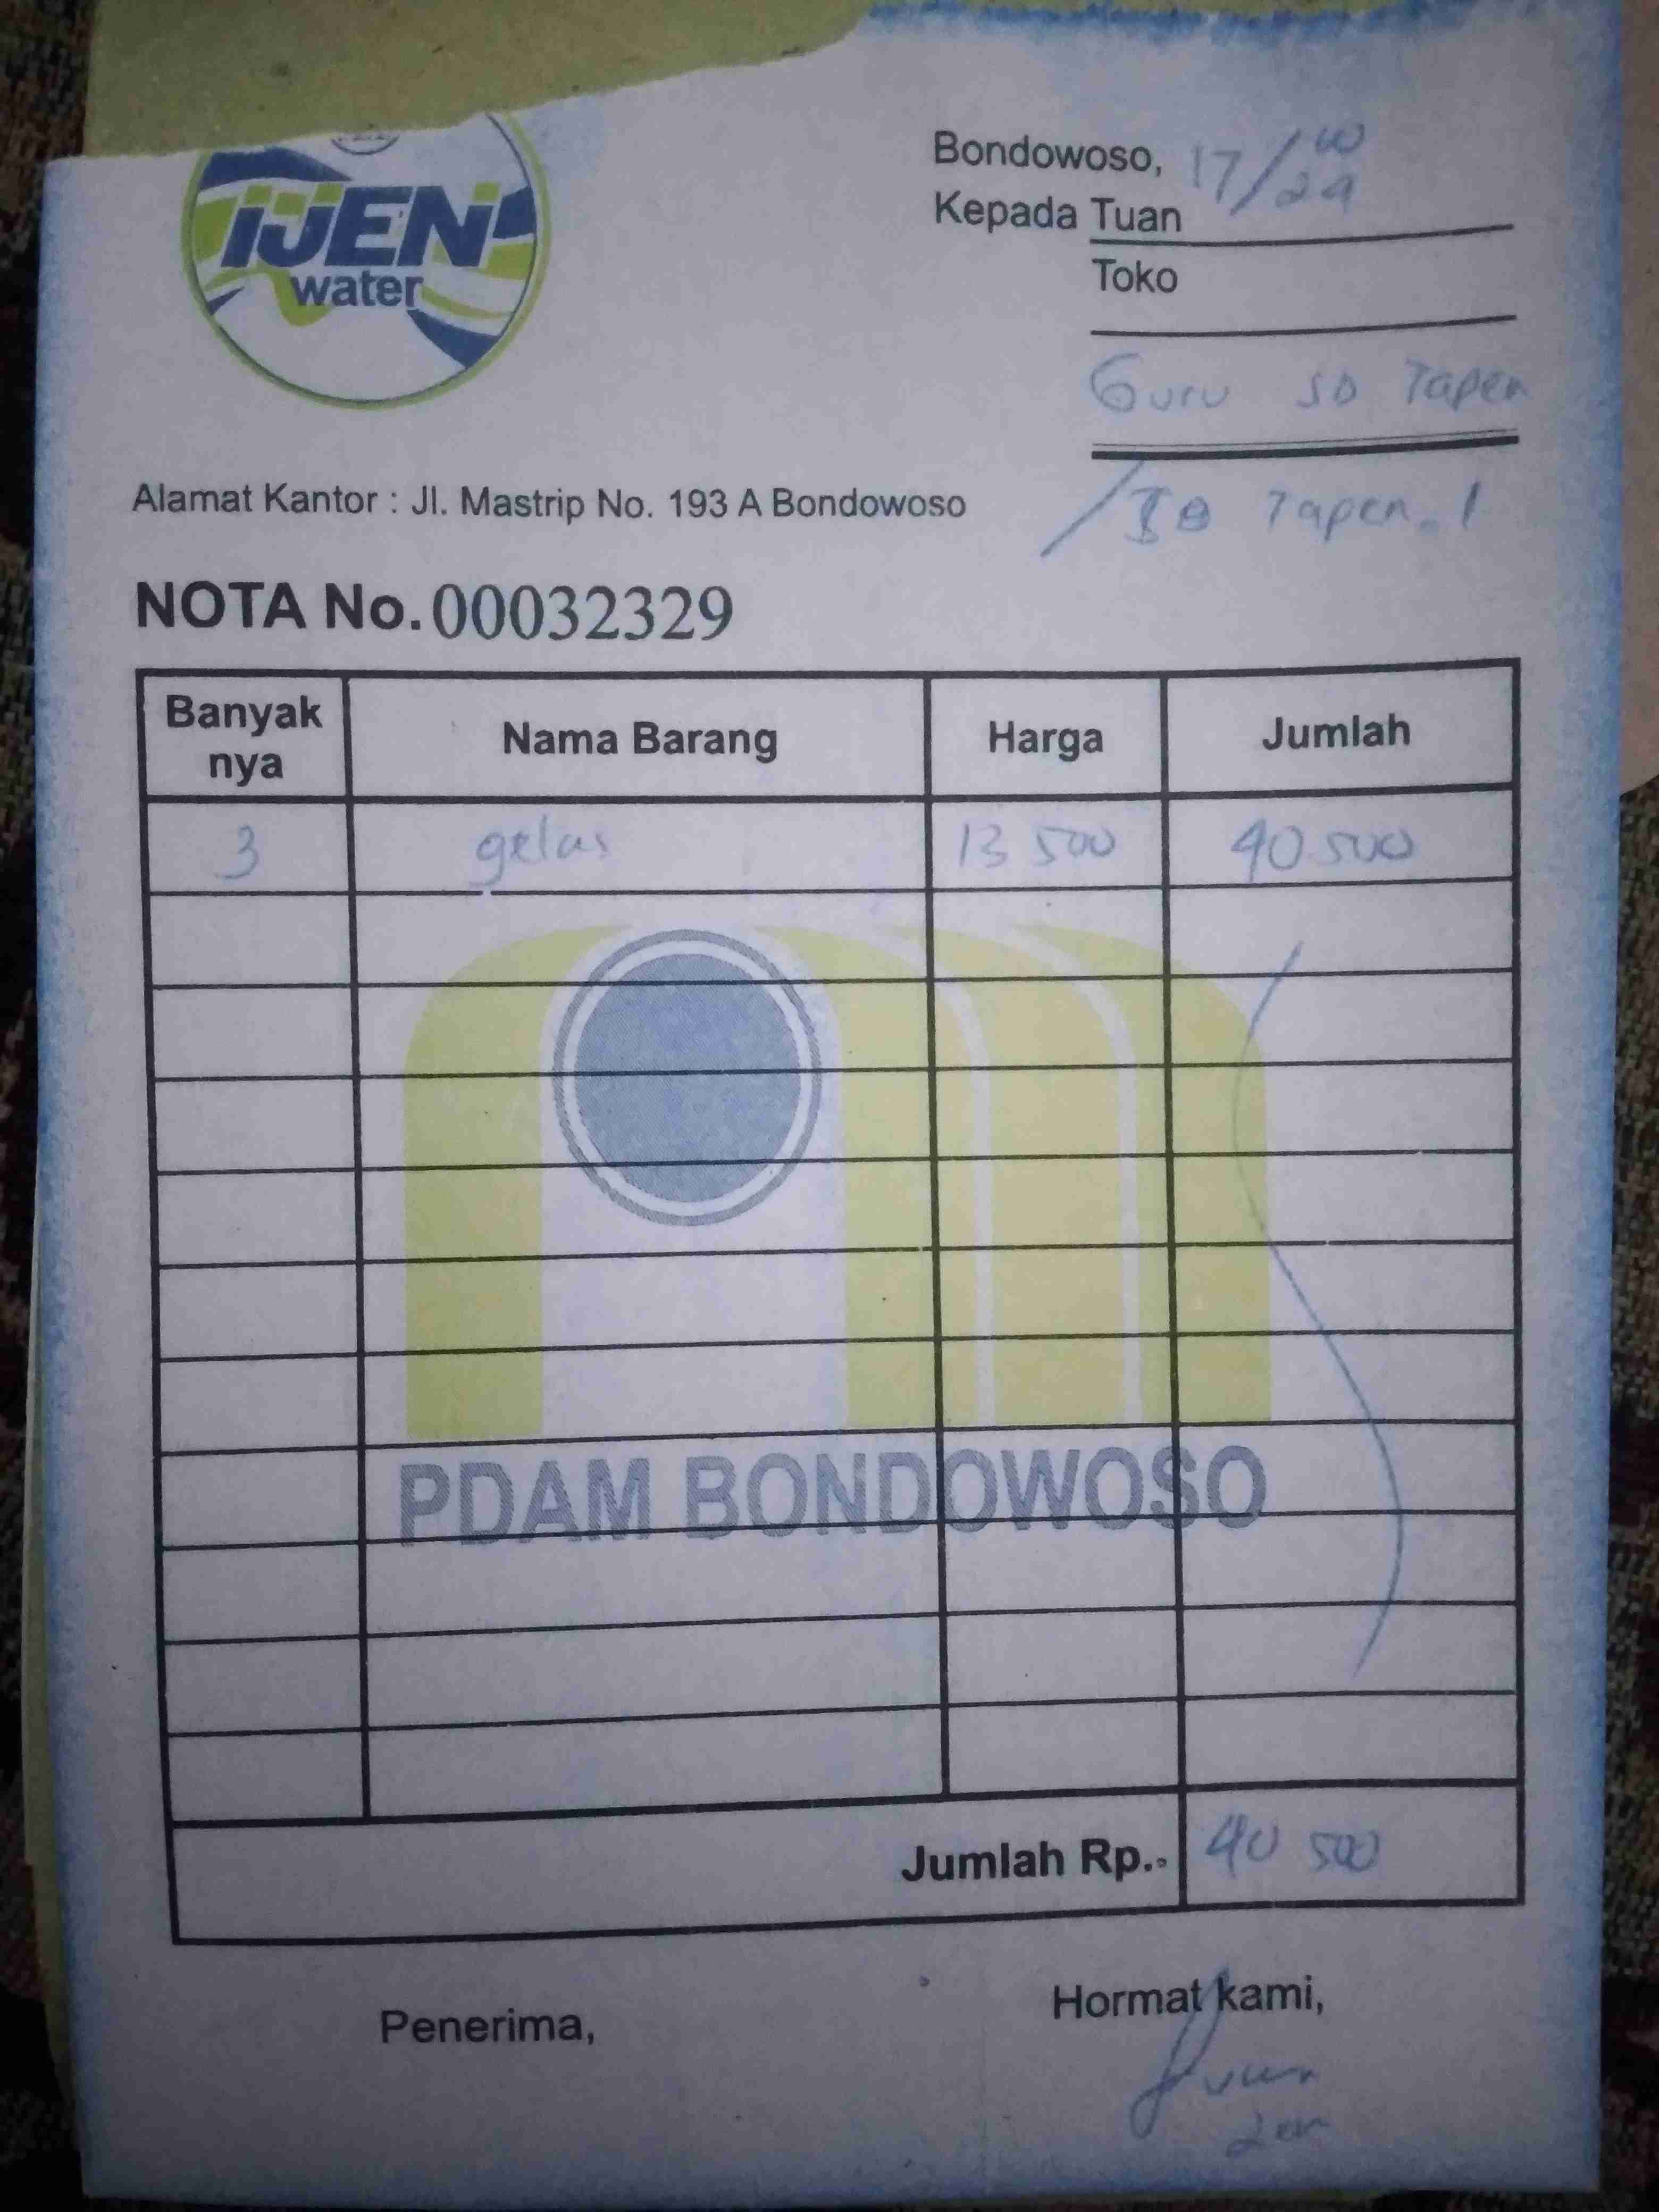 IJEN
water
Bondowoso, 17/10/24
Kepada Tuan
Toko
Guru SD Tapen
/ SD Tapen. 1
Alamat Kantor : Jl. Mastrip No. 193 A Bondowoso
NOTA No. 00032329
Banyak nya Nama Barang Harga Jumlah
3 gelas 13 500 40 500
PDAM BONDOWOSO
Jumlah Rp.. 40 500
Penerima, Hormat kami,